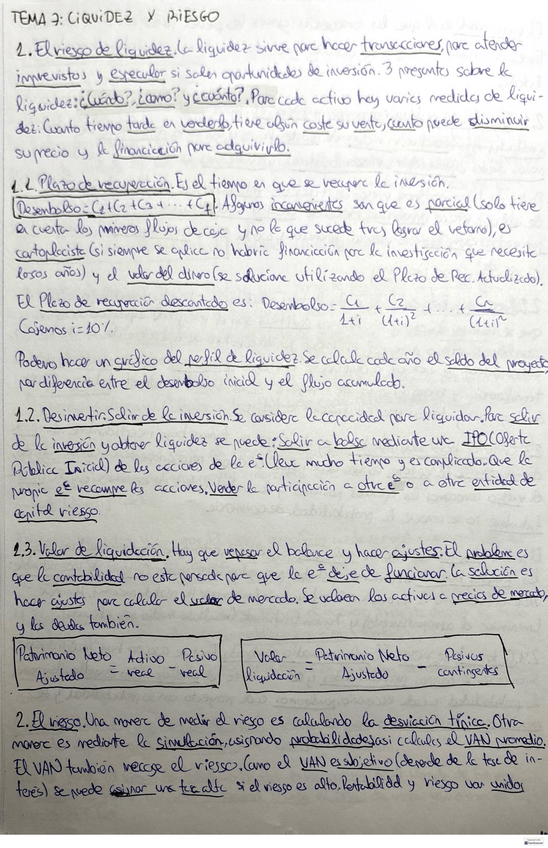 TEMA 7: LIQUIDEZ Y RIESGO
1. El riesgo de liquidez. La liquidez sirve para hacer transacciones, para atender
imprevistos y especular si salen oportunidades de inversión. 3 preguntas sobre la
liquidez: ¿Cuándo?, ¿cómo? y ¿cuánto?. Para cada activo hay varias medidas de liqui-
dez: Cuanto tiempo tarda en venderlo, tiene algún coste su venta, cuanto puede disminuir
su precio y la financiación para adquirirlo.
1.1. Plazo de recuperación. Es el tiempo en que se recupera la inversión.
Desembolso = C1 + C2 + C3 + ... + Cn. Algunos inconvenientes son que es parcial (solo tiene
en cuenta los primeros flujos de caja y no lo que sucede tras lograr el retorno), es
cortoplacista (si siempre se aplica no habría financiación para la investigación que necesita
largos años) y el valor del dinero (se soluciona utilizando el Plazo de Rec. Actualizado).
El Plazo de recuperación descontado es: Desembolso = C1/(1+i) + C2/(1+i)² + ... + Cn/(1+i)ⁿ
Cogemos i = 10%.
Podemos hacer un gráfico del perfil de liquidez. Se calcula cada año el saldo del proyecto
por diferencia entre el desembolso inicial y el flujo acumulado.
1.2. Desinvertir. Salir de la inversión. Se considera la capacidad para liquidar. Para salir
de la inversión y obtener liquidez se puede: Salir a bolsa mediante una IPO (Oferta
Pública Inicial) de las acciones de la eª (lleva mucho tiempo y es complicado. Que la
propia eª recompre las acciones. Vender la participación a otra eª o a otra entidad de
capital riesgo.
1.3. Valor de liquidación. Hay que repasar el balance y hacer ajustes. El problema es
que la contabilidad no esta pensada para que la eª deje de funcionar. La solución es
hacer ajustes para calcular el valor de mercado. Se valoran los activos a precios de mercado,
y las deudas también.
Patrimonio Neto Ajustado = Activo real - Pasivo real
Valor liquidación = Patrimonio Neto Ajustado - Pasivos contingentes
2. El riesgo. Una manera de medir el riesgo es calculando la desviación típica. Otra
manera es mediante la simulación, asignando probabilidades, así calculas el VAN promedio.
El VAN también recoge el riesgo. Como el VAN es subjetivo (depende de la tasa de in-
terés) se puede asignar una tasa alta si el riesgo es alto. Rentabilidad y riesgo van unidos